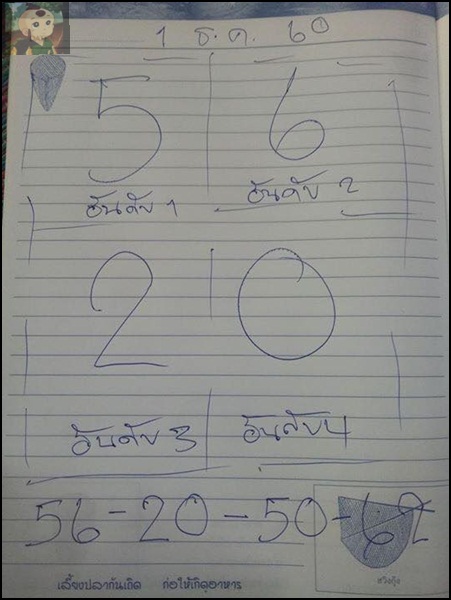 1 ธ.ค. 60
5 6
อันดับ 1 อันดับ 2
2 0
อันดับ 3 อันดับ 4
56-20-50-62
เลี้ยงปลากันเถิด ก่อให้เกิดอาหาร
สวิงกุ้ง